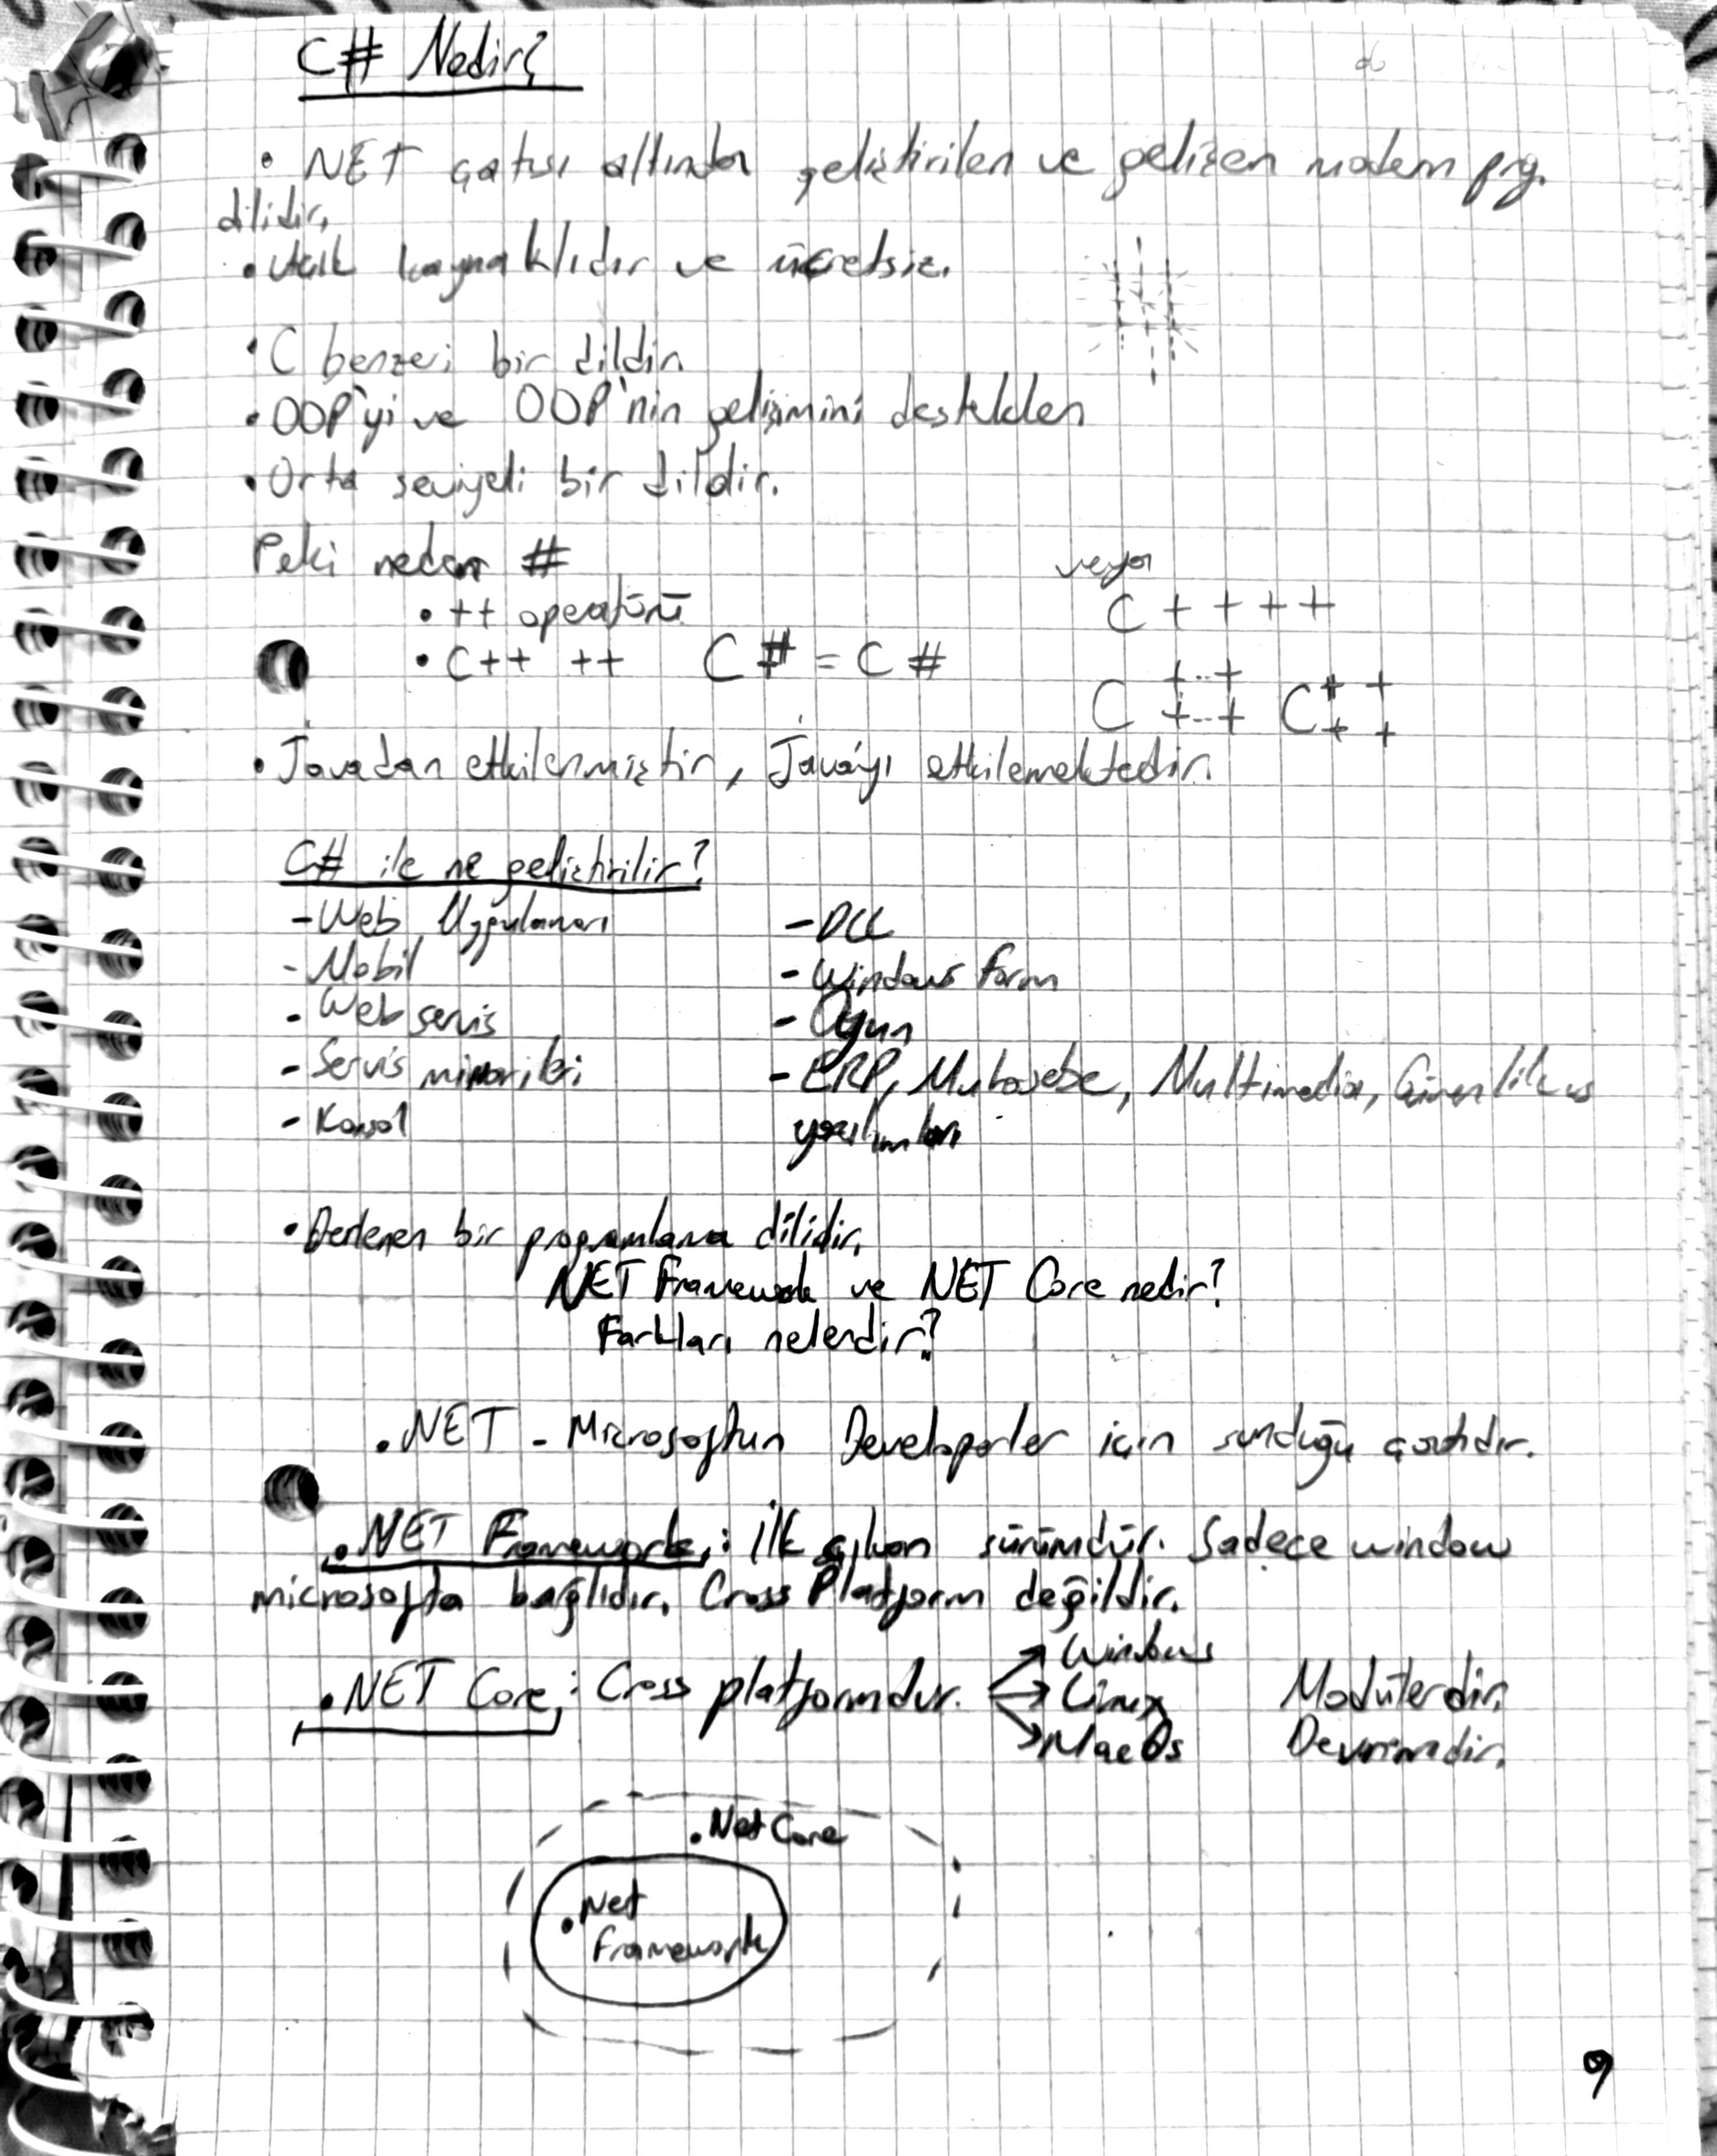 C# Nedir?
• NET çatısı altında geliştirilen ve gelişen modern prg.
dilidir.
• Açık kaynaklıdır ve ücretsiz.
• C benzeri bir dildir.
• OOP'yi ve OOP'nin gelişimini destekler
• Orta seviyeli bir dildir.
Peki neden #
veya
• ++ operatörü
C + + + +
• C++ ++ C # = C #
C +..+ C + +
+..+ + +
• Javadan etkilenmiştir, Java'yı etkilemektedir.
C# ile ne geliştirilir?
- Web Uygulaması
- DLL
- Mobil
- Windows Form
- Web servis
- Oyun
- Servis mimarileri
- ERP, Muhasebe, Multimedia, Güvenlik vs
- Konsol
yazılımları
• Derlenen bir programlama dilidir.
NET Framework ve NET Core nedir?
Farkları nelerdir?
.NET - Microsoftun Developerler için sunduğu çatıdır.
.NET Framework; : İlk çıkan sürümdür. Sadece window
microsofta bağlıdır. Cross Platform değildir.
Windows
.NET Core; : Cross platformdur. Linux Modülerdir.
MacOs Devrimdir.
.Net Core
.Net
Framework
9